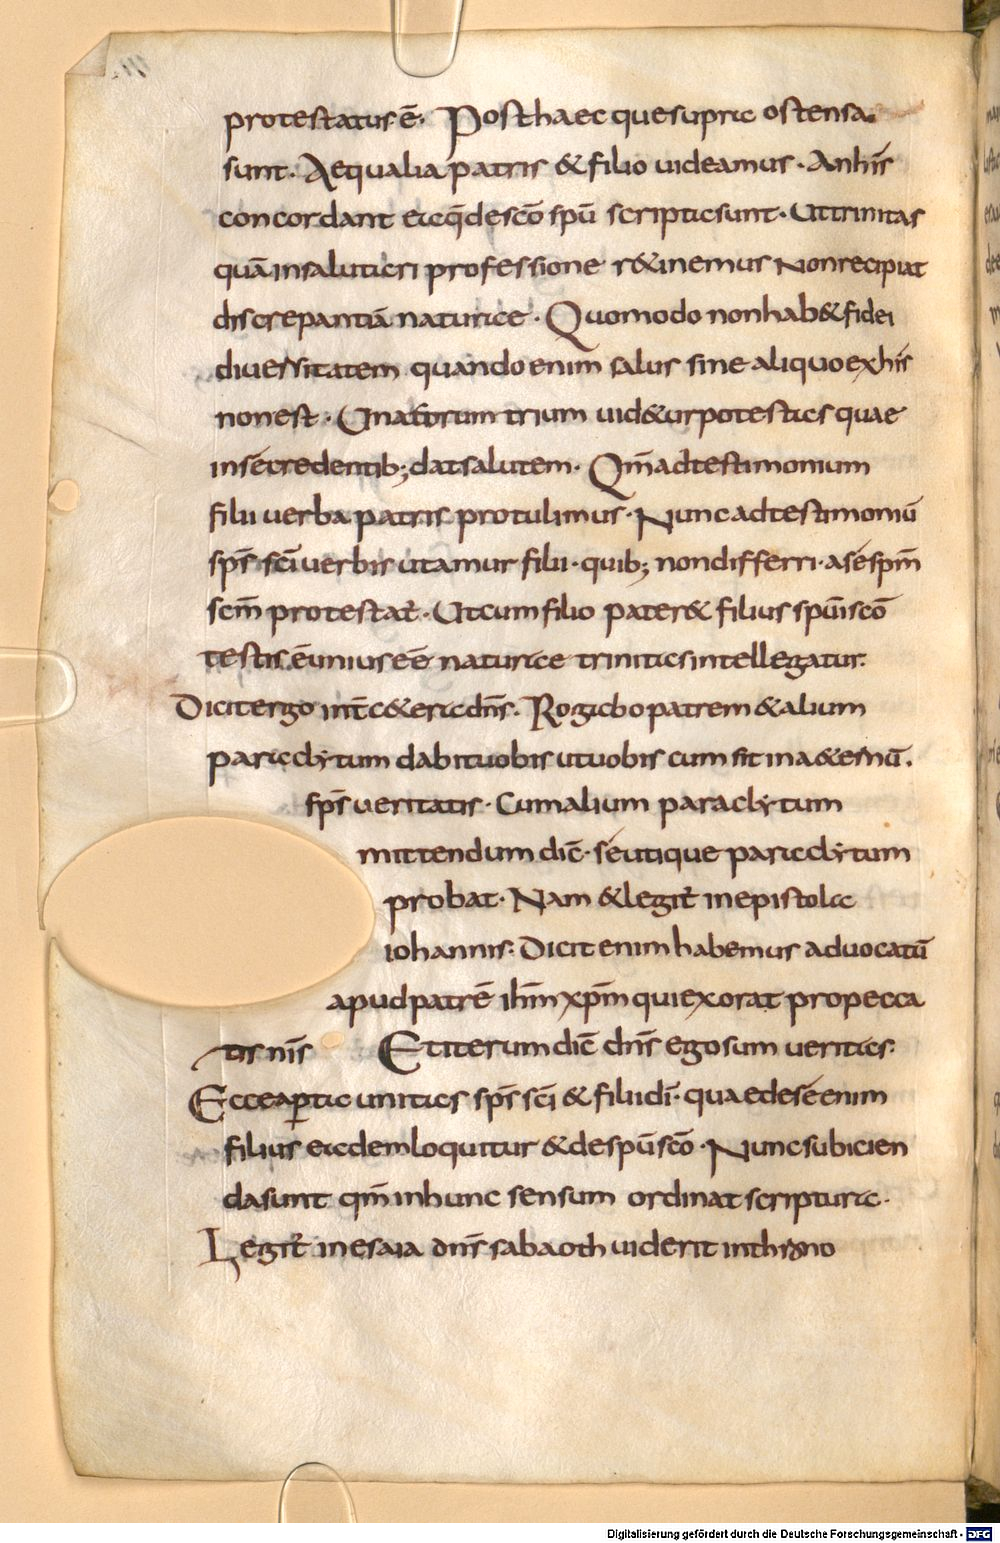 protestatus ē. Posthaec que supra ostensa
sunt. Aequalia patris & filio uideamus. An his̄
concordant ea q̄ de sc̄o sp̄u scripta sunt. Ut trinitas
quā in salutari professione r&inemus Non recipiat
discrepantiā naturae. Quomodo non hab& fidei
diuersitatem quando enim salus sine aliquo ex his̄
non est. Una horum trium uid&ur potestas quae
in se credentib; dat salutem. Qm̄ ad testimonium
filii uerba patris protulimus. Nunc ad testimoniū
sp̄s sc̄i uerbis utamur filii. quib; non differri. a se sp̄m
scm̄ protestat̄. Ut cum filio pater & filius sp̄ui sc̄o
testis ē unius eē naturae trinitas intellegatur.
Dicit ergo int̄ c&era dn̄s. Rogabo patrem & alium
paraclytum dabit uobis ut uobiscum sit in a&ernū.
sp̄s ueritatis. Cum alium paraclytum
mittendum dic̄. se utique paraclytum
probat. Nam & legit̄ in epistola
iohannis. Dicit enim habemus aduocatū
apud patrē ih̄m xp̄m qui exorat pro pecca
tis nis̄ Et iterum dic̄ dn̄s ego sum ueritas.
Ecce aperta unitas sp̄s sc̄i & filii dī. quae de se enim
filius eadem loquitur & de sp̄u sc̄o. Nunc subicien
da sunt qm̄ in hunc sensum ordinat scriptura.
Legit̄ in esaia dn̄s sabaoth uiderit in throno
Digitalisierung gefördert durch die Deutsche Forschungsgemeinschaft - DFG